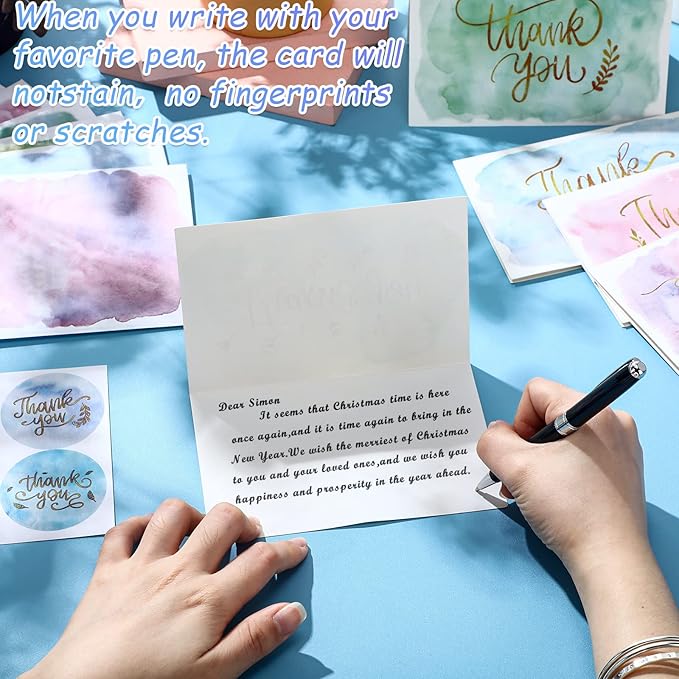 When you write with your
favorite pen, the card will
notstain, no fingerprints
or scratches.
thank
you
Thank
Dear Simon
It seems that Christmas time is here
once again,and it is time again to bring in the
New Year.We wish the merriest of Christmas
to you and your loved ones,and we wish you
happiness and prosperity in the year ahead.
Thank
you
thank
you